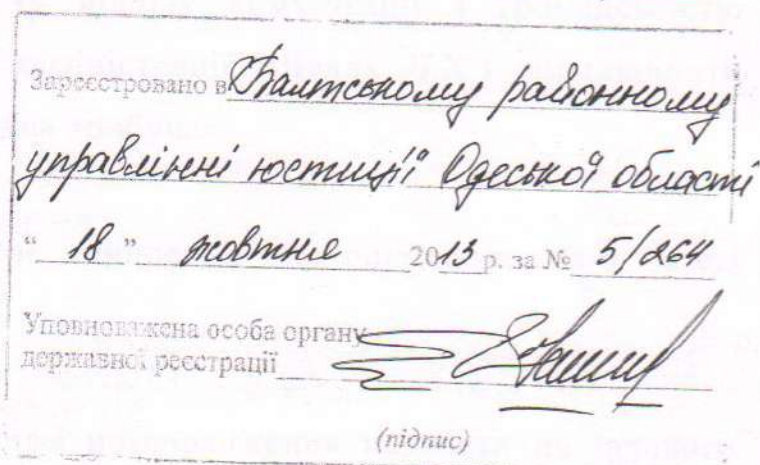 Зареєстровано в Балтському районному
управлінні юстиції Одеської області
“ 18 ” жовтня 2013 р. за № 5/264
Уповноважена особа органу
державної реєстрації
(підпис)